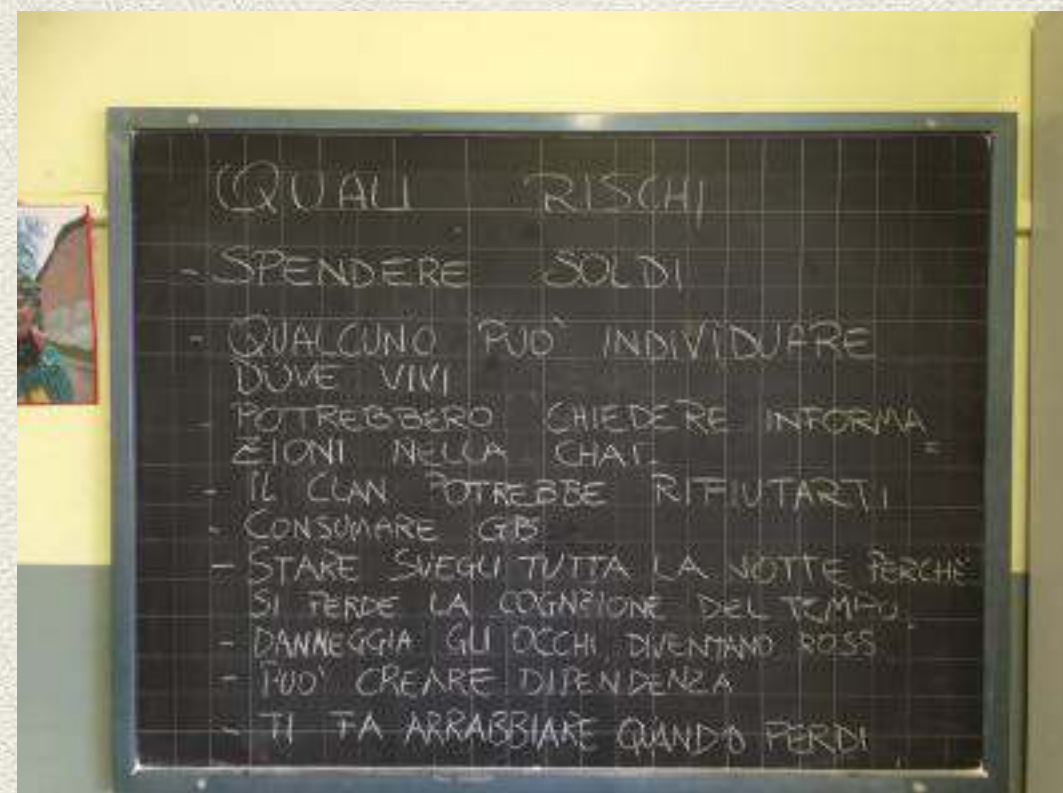 QUALI RISCHI
- SPENDERE SOLDI
- QUALCUNO PUO' INDIVIDUARE
DOVE VIVI
- POTREBBERO CHIEDERE INFORMA
ZIONI NELLA CHAT.
- IL CLAN POTREBBE RIFIUTARTI
- CONSUMARE GB
- STARE SVEGLI TUTTA LA NOTTE PERCHÈ
SI PERDE LA COGNIZIONE DEL TEMPO.
- DANNEGGIA GLI OCCHI DIVENTANO ROSSI
- PUO' CREARE DIPENDENZA
- TI FA ARRABBIARE QUANDO PERDI